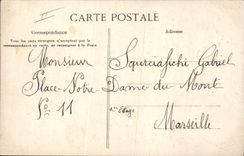 CARTE POSTALE
Correspondance
Adresse
Tous les pays étrangers n'acceptent pas de
correspondance au recto, se renseigner à la Poste
Monsieur Squarciafichi Gabriel
Place Notre Dame du Mont
No 11
2me Etage
Marseille